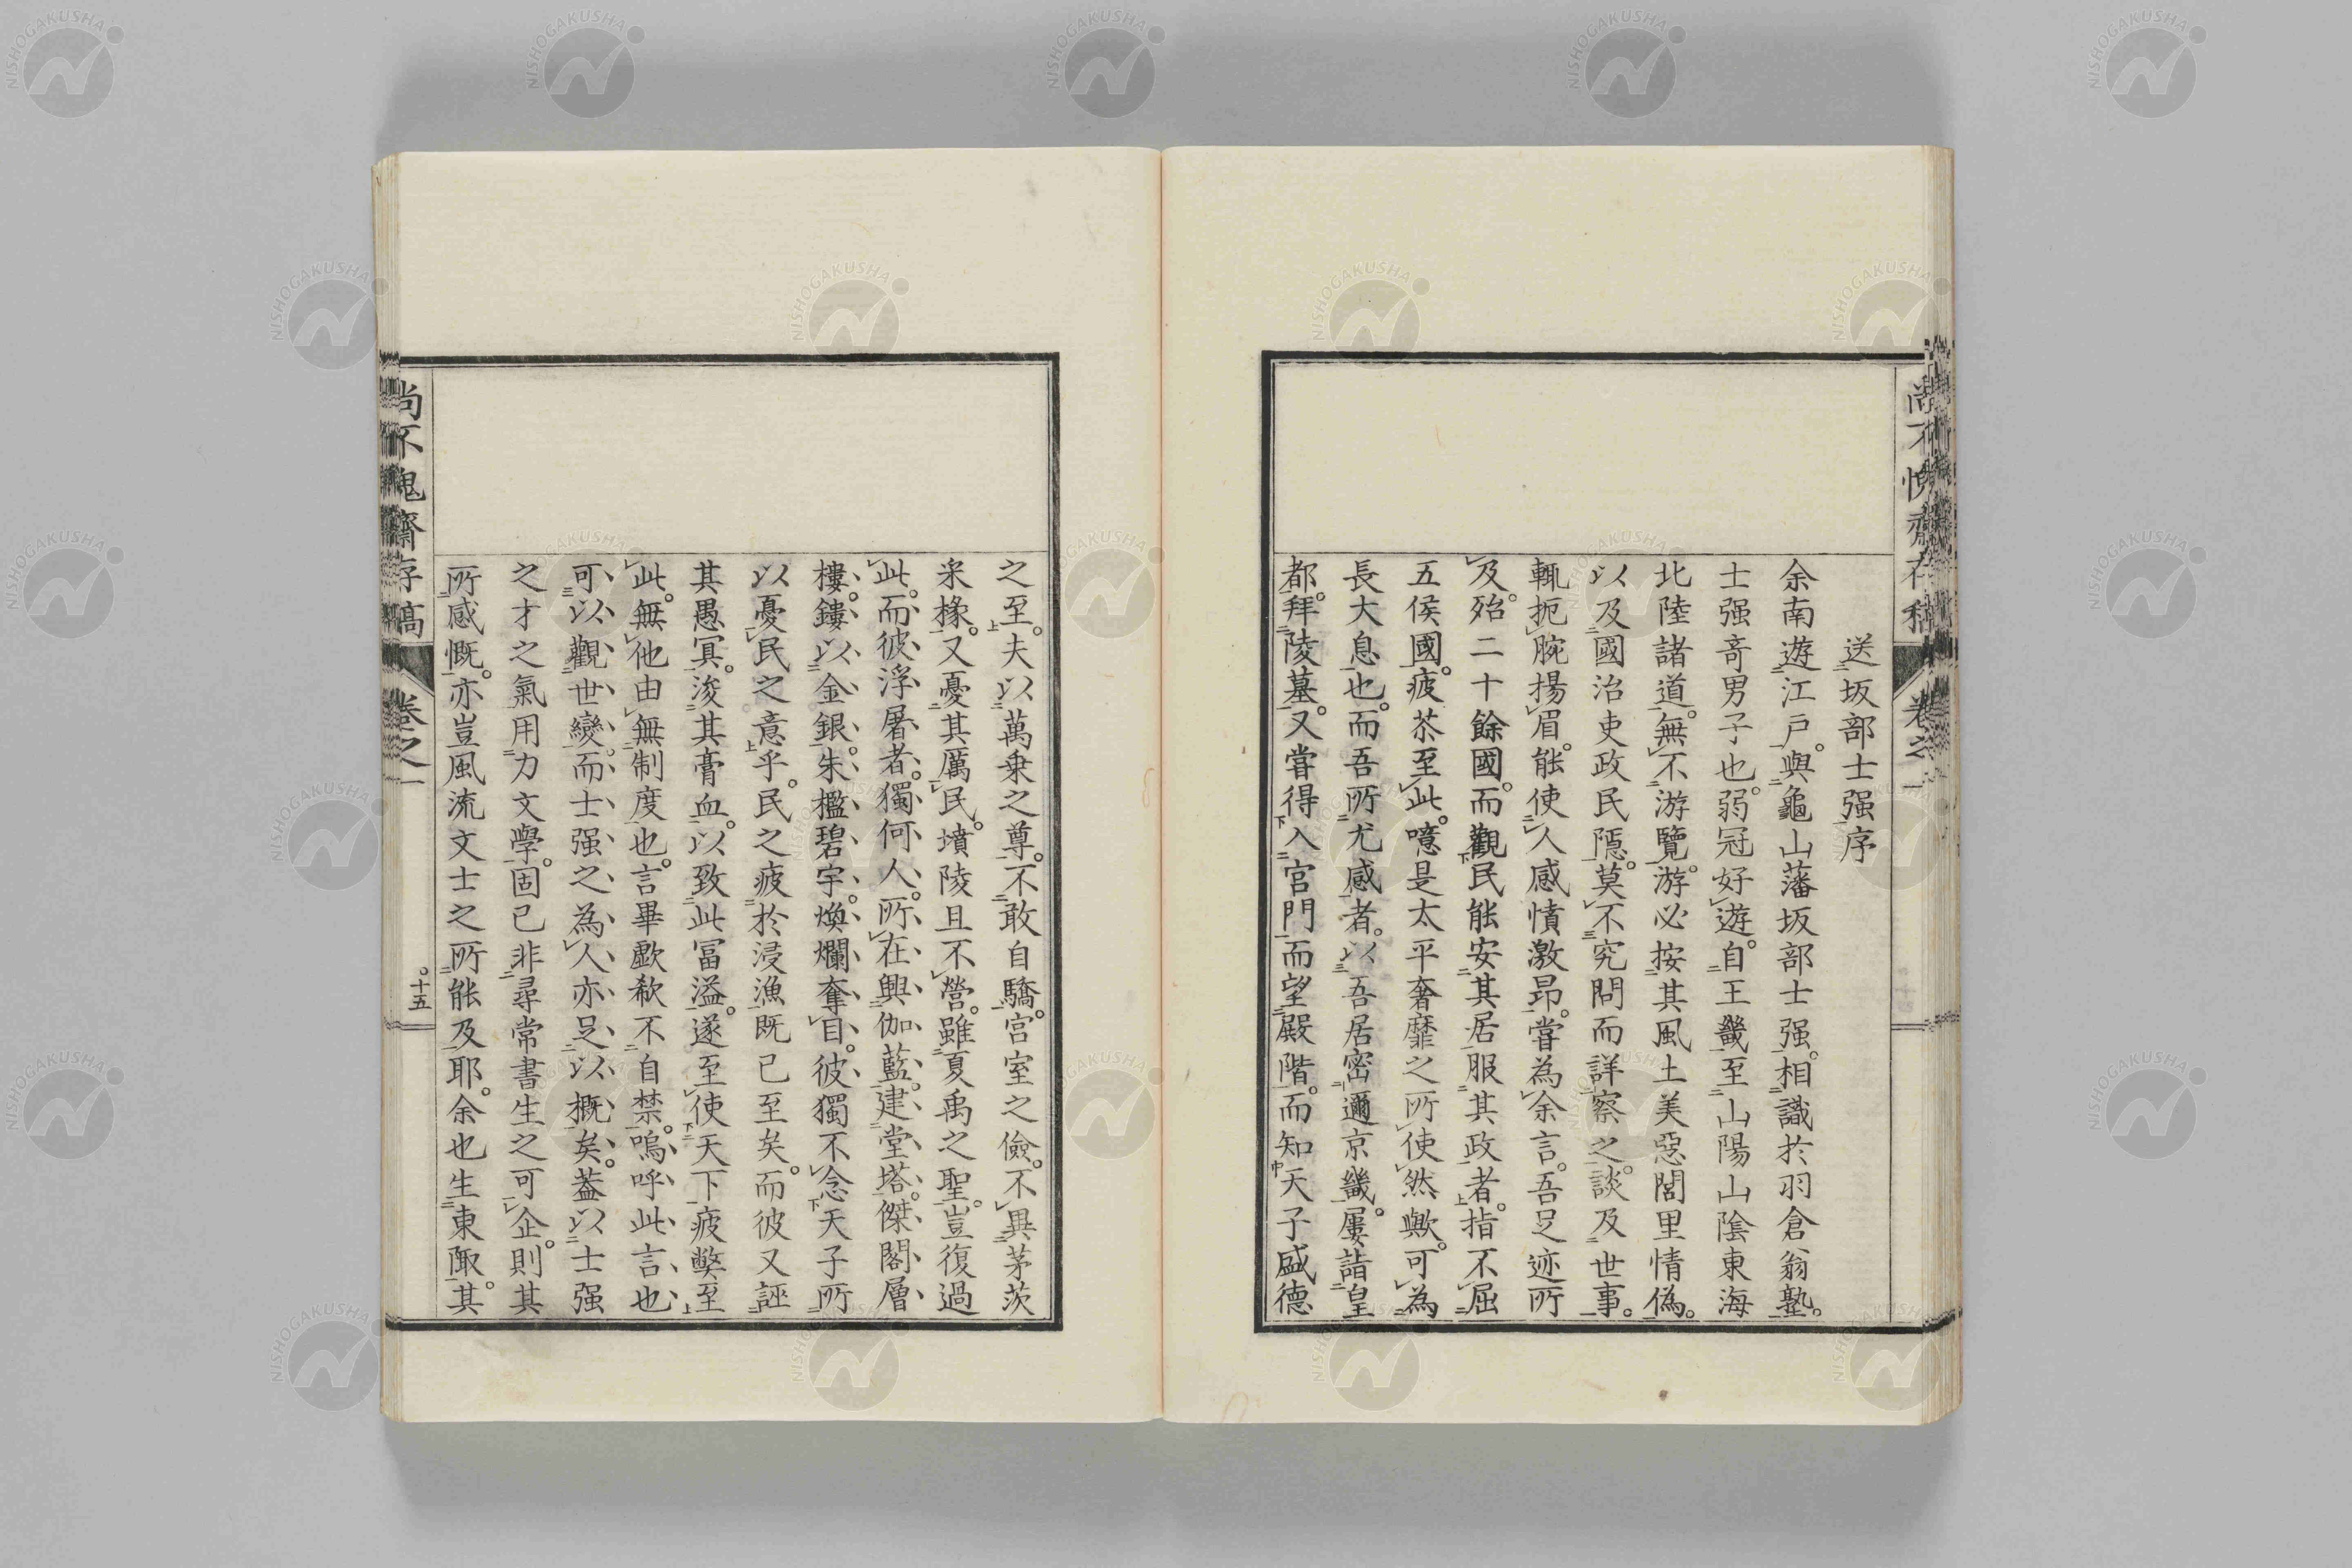 送坂部士强序
余南遊江戶。與龜山藩坂部士强。相識於羽倉翁塾。
士强奇男子也。弱冠好遊。自王畿至山陽山陰東海
北陸諸道。無不游覽。游必按其風土美惡閭里情僞。
以及國治吏政民隱。莫不究問而詳察之。談及世事。
輒扼腕揚眉。能使人感憤激昂。嘗為余言。吾足迹所
及。殆二十餘國。而觀民能安其居服其政者。指不屈
五侯國。疲苶至此。噫是太平奢靡之所使然歟。可為
長大息也。而吾所尤感者。以吾居密邇京畿。屢詣皇
都。拜陵墓。又嘗得入宮門而望殿階。而知天子盛德
之至。夫以萬乗之尊。不敢自驕。宮室之儉。不異茅茨
采椽。又憂其厲民。墳陵且不營。雖夏禹之聖。豈復過
此。而彼浮屠者。獨何人。所在興伽藍。建堂塔。傑閣層
樓。鏤以金銀。朱檻碧宇。煥爛奪目。彼獨不念天子所
以憂民之意乎。民之疲於浸漁既已至矣。而彼又誣
其愚冥。浚其膏血。以致此冨溢。遂至使天下疲弊至
此。無他由無制度也。言畢歔欷不自禁。嗚呼此言也
可以觀世變。而士强之為人亦足以概矣。葢以士强
之才之氣用力文學。固已非尋常書生之可企。則其
所感慨。亦豈風流文士之所能及耶。余也生東陬。其
尚不愧齋存稿
卷之一
十五